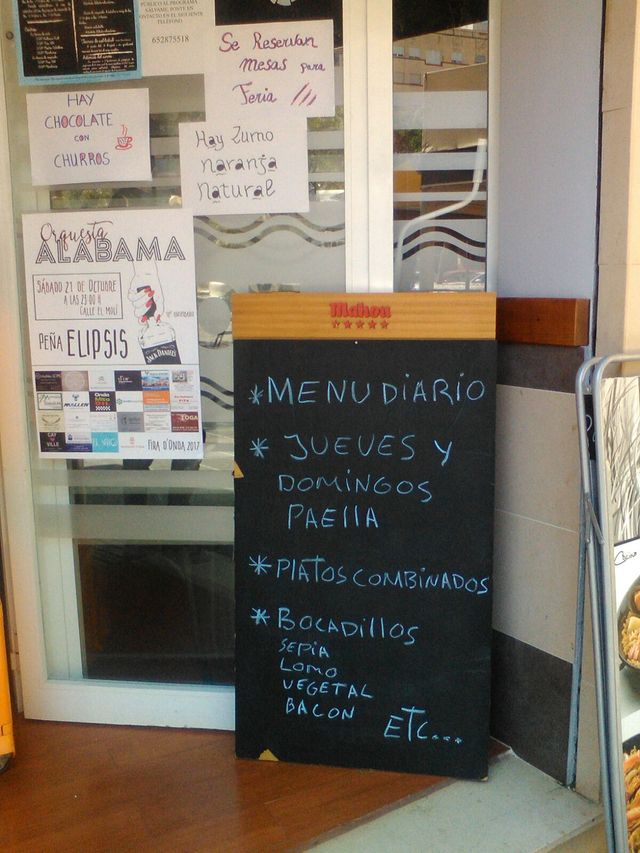 PÚBLICO AL PROGRAMA
SÁLVAME, PONTE EN
CONTACTO EN EL SIGUIENTE
TELÉFONO
652875518
Se Reservan
Mesas para
Feria
HAY
CHOCOLATE
CON
CHURROS
Hay Zumo
naranja
Natural
Orquesta
ALABAMA
SÁBADO 21 DE OCTUBRE
A LAS 23:00 H
CALLE EL MOLÍ
PEÑA ELIPSIS
JACK DANIEL'S
FIRA D'ONDA 2017
Mahou
*MENU DIARIO
* JUEVES Y
DOMINGOS
PAELLA
*PLATOS COMBINADOS
* BOCADILLOS
SEPIA
LOMO
VEGETAL
BACON
ETC...